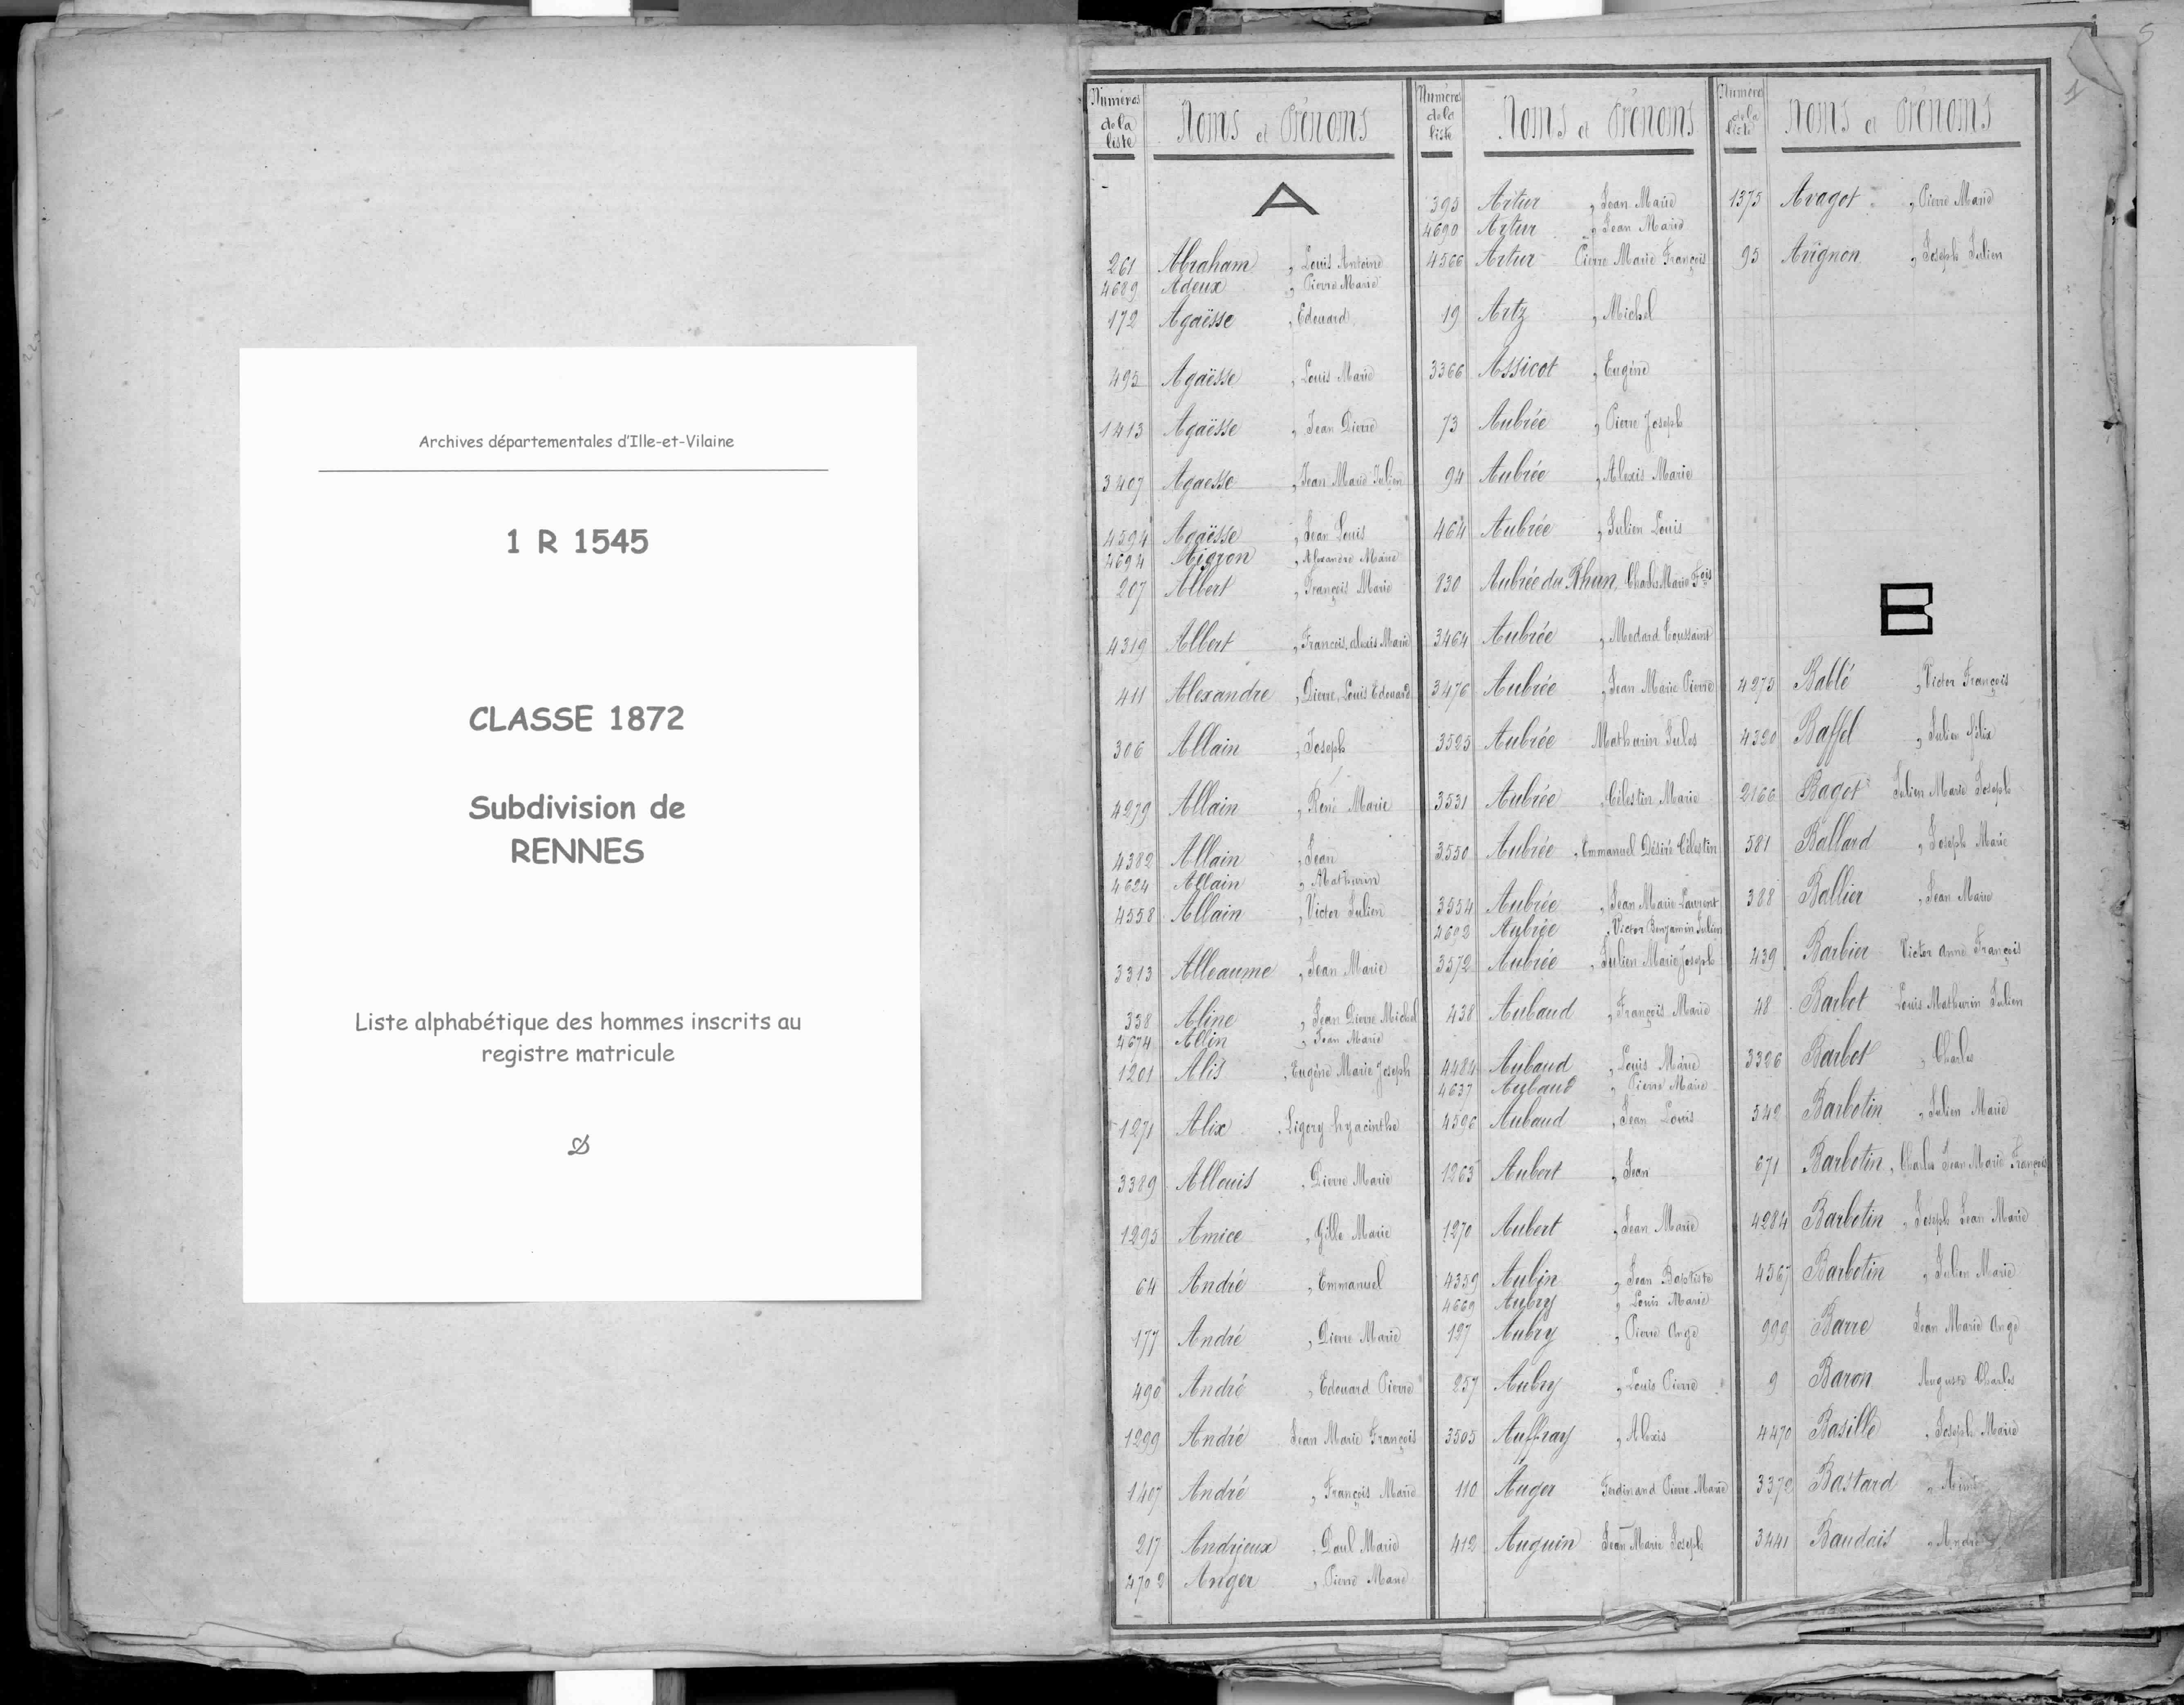 Archives départementales d'Ille-et-Vilaine
1 R 1545
CLASSE 1872
Subdivision de
RENNES
Liste alphabétique des hommes inscrits au
registre matricule
5
1
Numéros de la liste
Noms et Prénoms
A
261 Abraham, Louis Antoine
4689 Adeux, Pierre Marie
172 Agaësse, Edouard
495 Agaësse, Louis Marie
1413 Agaësse, Jean Pierre
3407 Agaesse, Jean Marie Julien
4594 Agaësse, Jean Louis
4694 Aigron, Alexandre Marie
207 Albert, François Marie
4319 Albert, François, alexis Marie
411 Alexandre, Pierre, Louis Edouard
306 Allain, Joseph
4279 Allain, René Marie
4382 Allain, Jean
4624 Allain, Mathurin
4558 Allain, Victor Julien
3313 Alleaume, Jean Marie
338 Aline, Jean Pierre Michel
4674 Allin, Jean Marie
1201 Alis, Eugène Marie Joseph
1271 Alix, Ligory hyacinthe
3389 Allouis, Pierre Marie
1295 Amice, Gille Marie
64 André, Emmanuel
177 André, Pierre Marie
490 André, Edouard Pierre
1299 André Jean Marie François
1407 André, François Marie
217 Andrieux, Paul Marie
4702 Anger, Pierre Marie
Numéros de la liste
Noms et Prénoms
395 Artur, Jean Marie
4690 Artur, Jean Marie
4566 Artur Pierre Marie François
19 Artz, Michel
3366 Assicot, Eugène
73 Aubrée, Pierre Joseph
94 Aubrée, Alexis Marie
464 Aubrée, Julien Louis
830 Aubrée du Rhun, Charles Marie Fois
3464 Aubrée, Médard Toussaint
3476 Aubrée, Jean Marie Pierre
3525 Aubrée Mathurin Jules
3531 Aubrée Célestin Marie
3550 Aubrée, Emmanuel Désiré Célestin
3554 Aubrée, Jean Marie Laurent
4692 Aubrée, Victor Benjamin Julien
3572 Aubrée, Julien Marie Joseph
438 Aubaud, François Marie
4484 Aubaud, Louis Marie
4637 Aubaud, Pierre Marie
4596 Aubaud, Jean Louis
1263 Aubert, Jean
1270 Aubert, Jean Marie
4359 Aubin, Jean Baptiste
4669 Aubry, Louis Marie
127 Aubry, Pierre Ange
257 Aubry, Louis Pierre
3505 Auffray, Alexis
110 Auger Ferdinand Pierre Marie
412 Auguin Jean Marie Joseph
Numéros de la liste
Noms et Prénoms
1375 Avagot, Pierre Marie
95 Avignon, Joseph Julien
B
4275 Bablé, Victor François
4320 Baffel, Julien félix
2166 Bagot Julien Marie Joseph
581 Ballard, Joseph Marie
388 Ballier, Jean Marie
439 Barbier Victor Anne François
48 Barbot Louis Mathurin Julien
3326 Barbot, Charles
542 Barbotin, Julien Marie
671 Barbotin, Charles Jean Marie François
4284 Barbotin, Joseph Jean Marie
4567 Barbotin, Julien Marie
999 Barre Jean Marie Ange
9 Baron Auguste Charles
4470 Basille, Joseph Marie
3372 Bastard
3441 Baudais, André